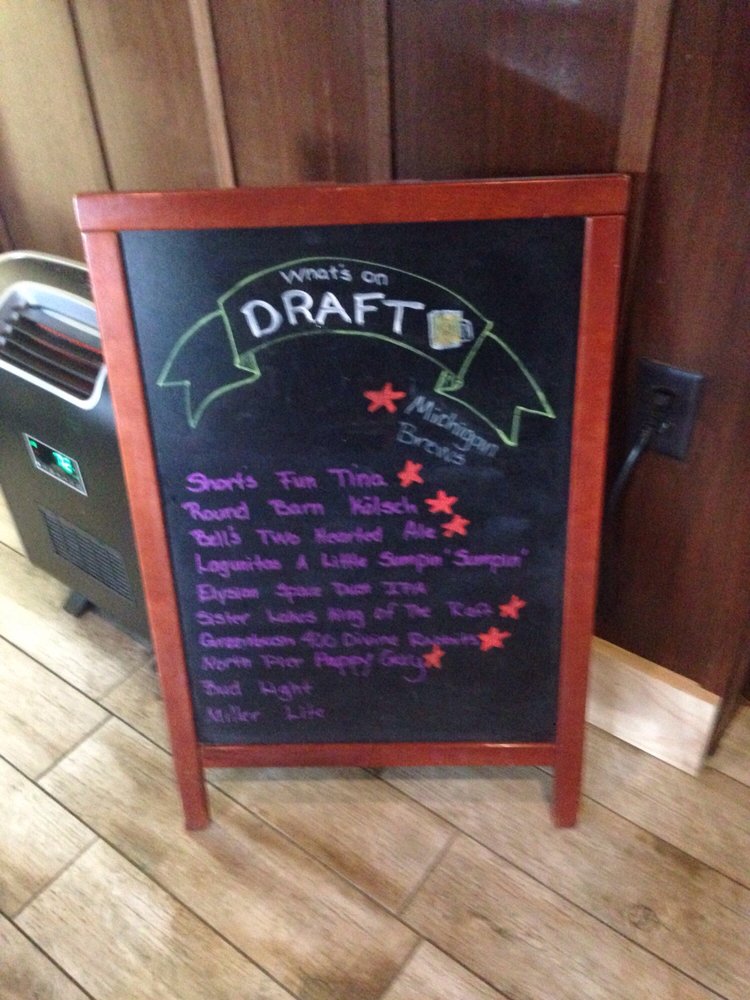 What's on
DRAFT
Michigan
Brews
Short's Fun Tina
Round Barn Kölsch
Bell's Two Hearted Ale
Lagunitas A Little Sumpin' Sumpin'
Elysian Space Dust IPA
Sister Lakes King of The Raft
Greenbush 400 Divine Rabbits
North Pier Pappy Gary
Bud Light
Miller Lite